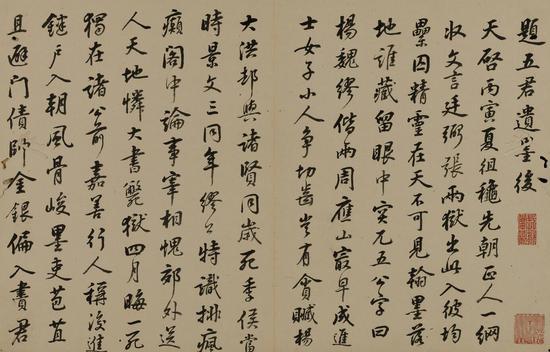 題五君遺墨後
天啓丙寅夏徂穐先朝正人一網
收文言廷弼張兩獄出此入彼均
纍囚精靈在天不可見翰墨落
地誰藏留眼中突兀五公字曰
楊魏繆偕兩周應山最早成進
士女子小人爭切齒豈有貪贓楊
大洪却與諸賢同歲死季侯當
時景文三同年繆公特識排瘋
癲閣中論事宰相愧郊外送
人天地憐大書斃獄四月晦一死
獨在諸公前嘉善行人稱後進
鍵戶入朝風骨峻墨吏苞苴
且避門債帥金銀偏入賮君